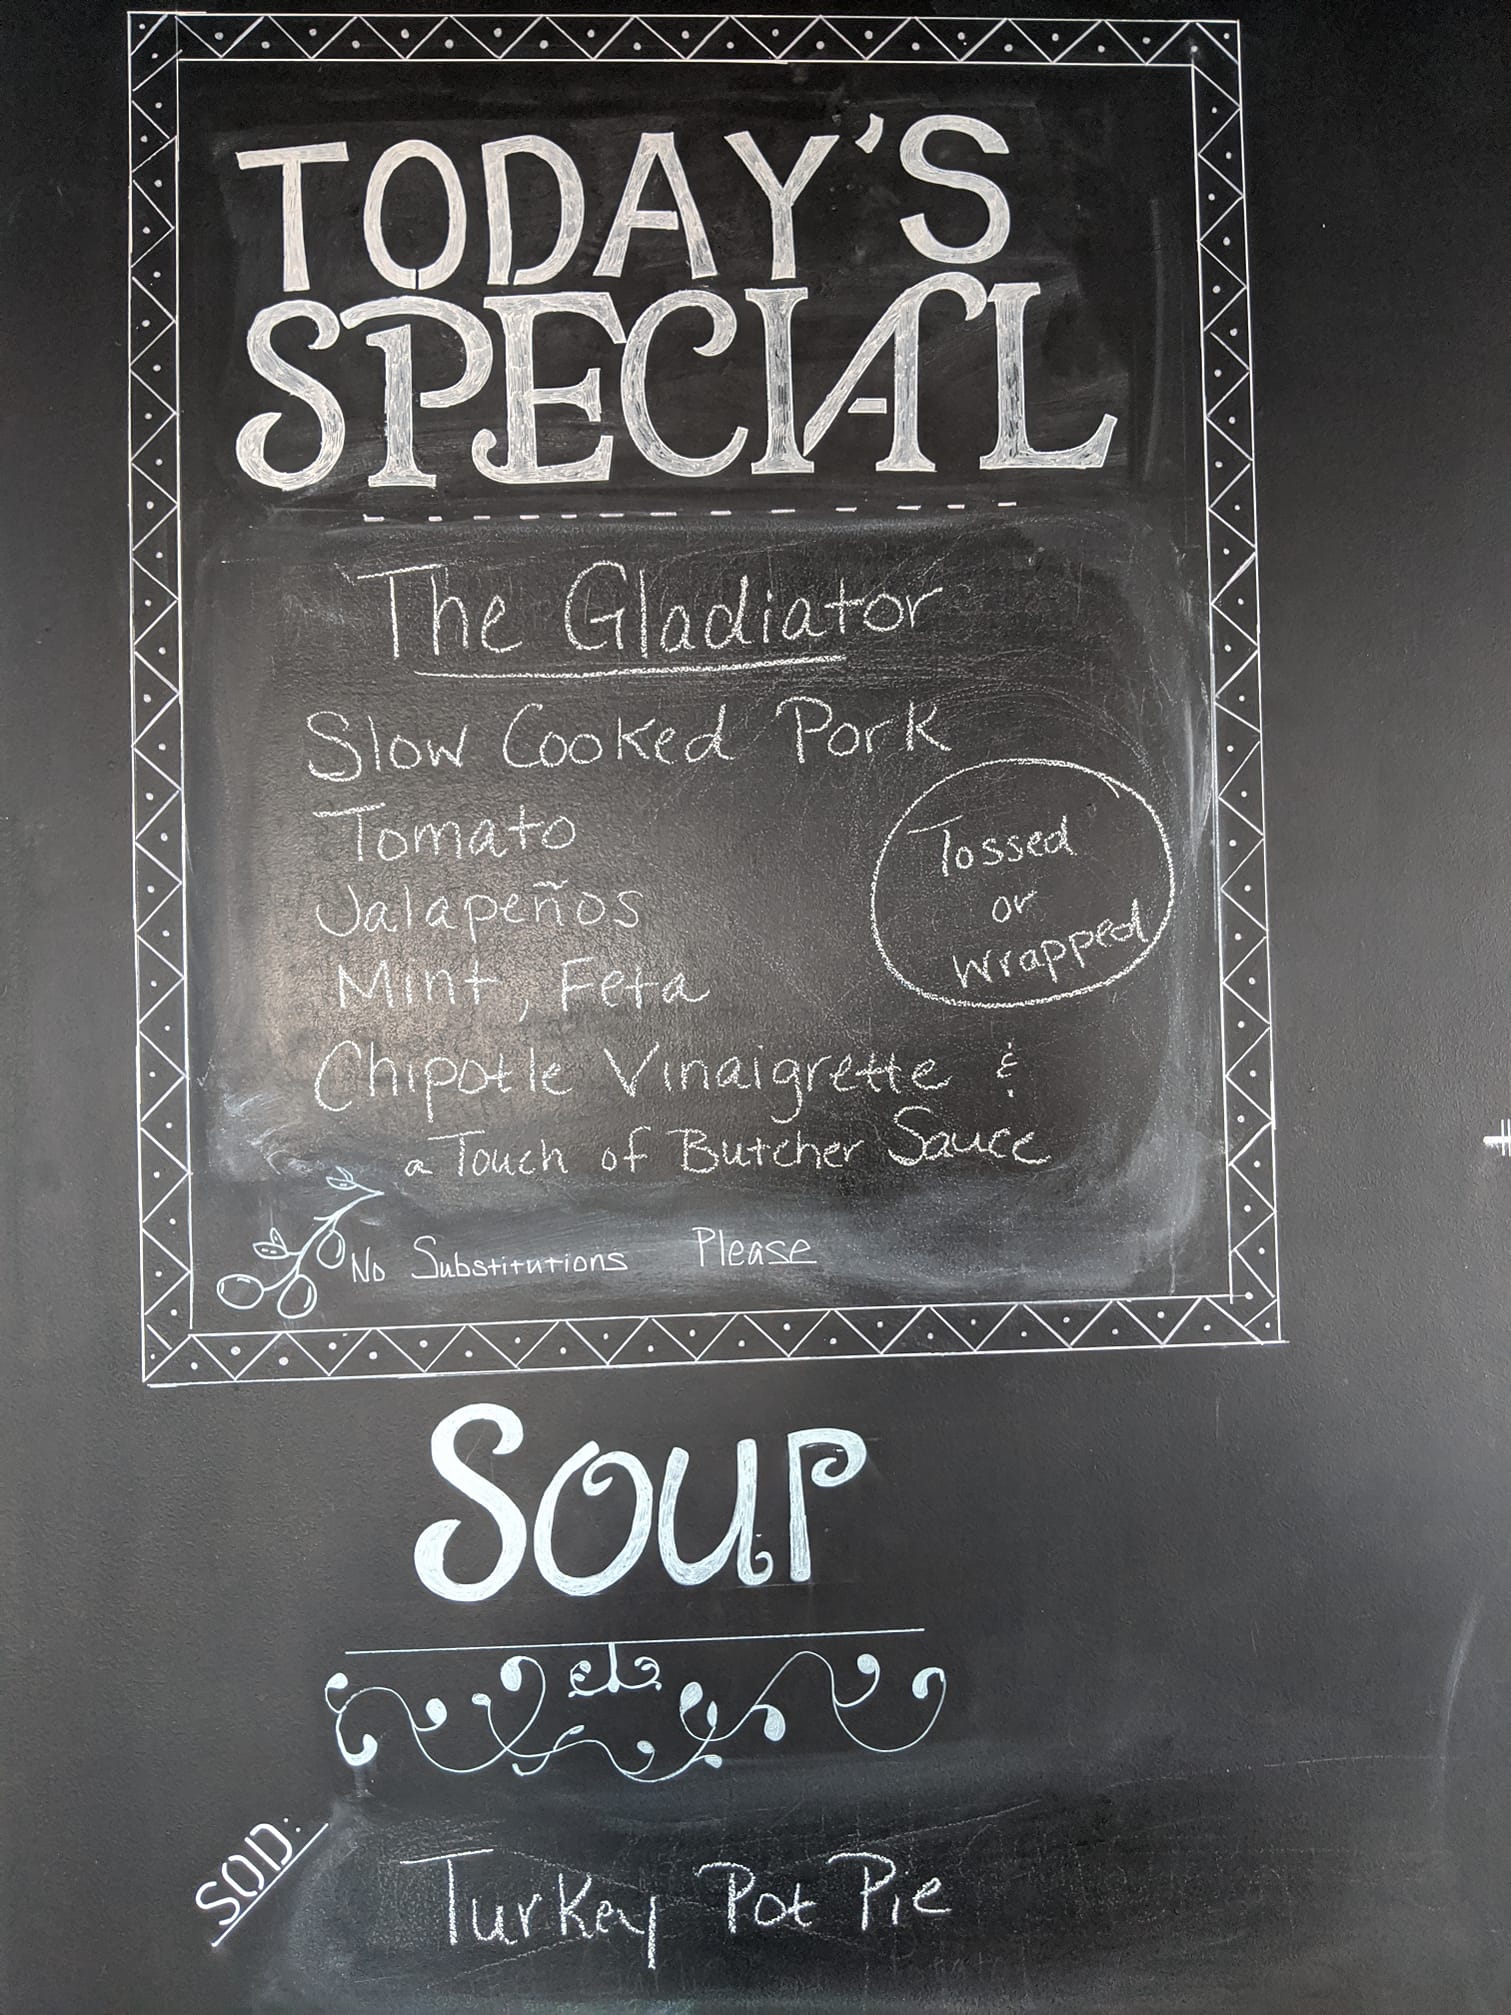 TODAY'S
SPECIAL
The Gladiator
Slow Cooked Pork
Tomato
Jalapeños
Mint, Feta
Chipotle Vinaigrette &
a Touch of Butcher Sauce
Tossed
or
Wrapped
No Substitutions Please
SOUP
SOTD:
Turkey Pot Pie